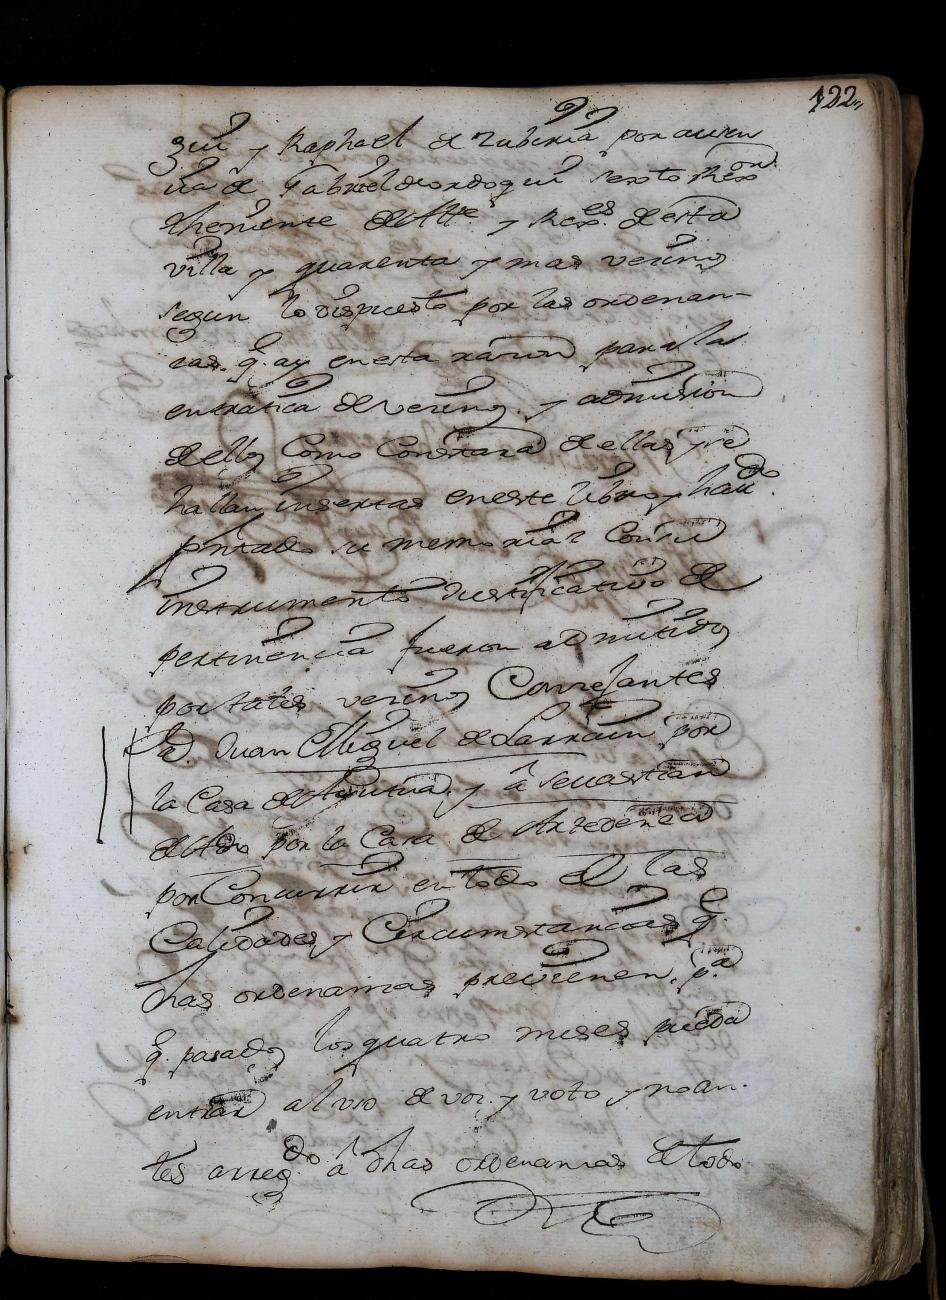 122
gui y Raphael de Zuviria por ausen
cia de Gabriel de ordoqui sexto Rexor
theniente de Alte y Rexes de esta
villa y quarenta y mas vecinos
segun lo dispuesto por las ordenan-
zas q ay en esta razon para la
entratica de vecinos y admision
de ellos Como Constara de ellas y se
hallan insertas en este libro y havdo
pntado su memorial Con su
instrumento Justificativo de
pertinencia fueron admitidos
por tales vecinos Concejantes
a D. Juan Miguel de Larrain por
la Casa de y a Sevastian
de Ado por la Casa de
por Concurrir en todo las
Calidades y Circumstancias q
dhas ordenanzas previenen, pa
q pasados los quatro meses pueda
entrar al uso de voz y voto y no an-
tes arregdo a dhas ordenanzas de todo